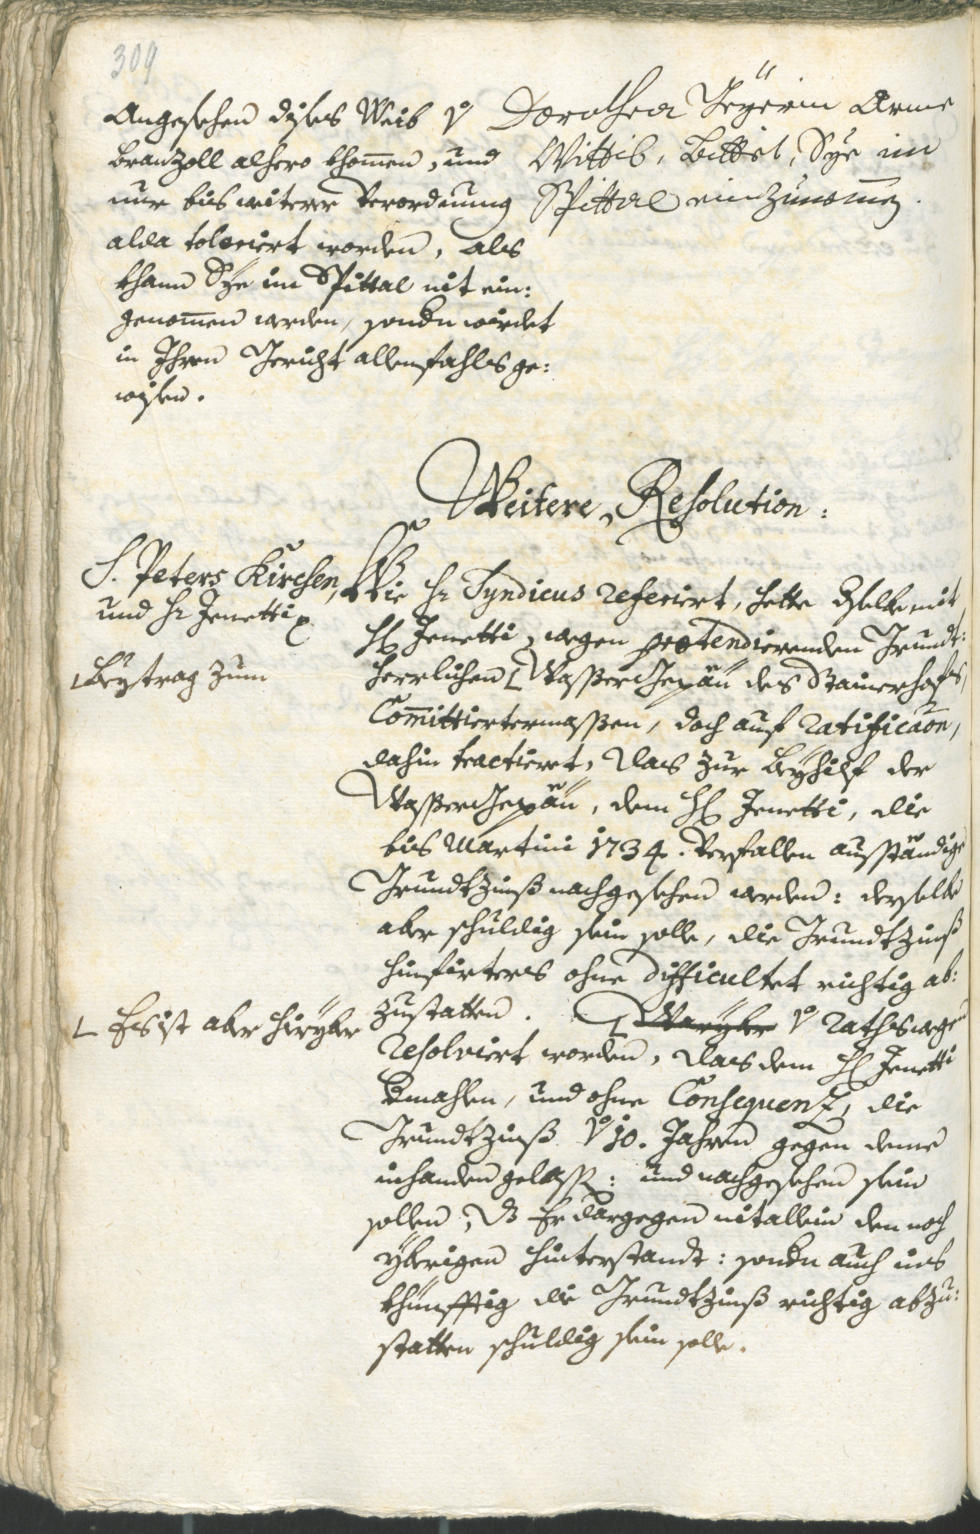 309
Angesehen dises Weib von
Branzoll alhero khom̅en, und
nur bis weiterer Verordnung
alda toleriert worden, als
khann Sÿe im Spittal nit ein:
genom̅en werden, sondern würdet
in Ihren Gericht allenfahls ge:
wisen.
Dorothea Geÿrin Arme
Wittib, bittet, Sÿe im
Spittal einzunem̅en.
Weitere Resolution:
S. Peters Kirchen,
und H: Jenetti
Wie H: Syndicus referiert, hette Er selbe mit
H: Jenetti, wegen praetendierenden Grundt:
└ Beÿtrag zum
herrlichen └ Wasser des Stainerhofs,
Com̅ittiertermassen, doch auf ratificaōn,
dahin tractieret, das zur Beÿhilf der
Wasser, dem H: Jenetti, die
bis Martini 1734. verfallen ausständige
Grundtzinß nachgesehen werden: derselbe
aber schuldig sein solle, die Grundtzinß
hinfirters ohne difficultet richtig ab:
zustatten.
└ Es ist aber hirÿber
von Raths wegen
resolviert worden, das dem H: Jenetti
dermahlen, und ohne Consequenz, die
Grundtzinß von 10. Jahren gegen deme
inhanden gelassen: und nachgesehen sein
sollen, das Er dargegen nit allein den noch
ÿbrigen Hinterstandt: sondern auch ins
khünfftig die Grundtzinß richtig abzu:
statten schuldig sein solle.